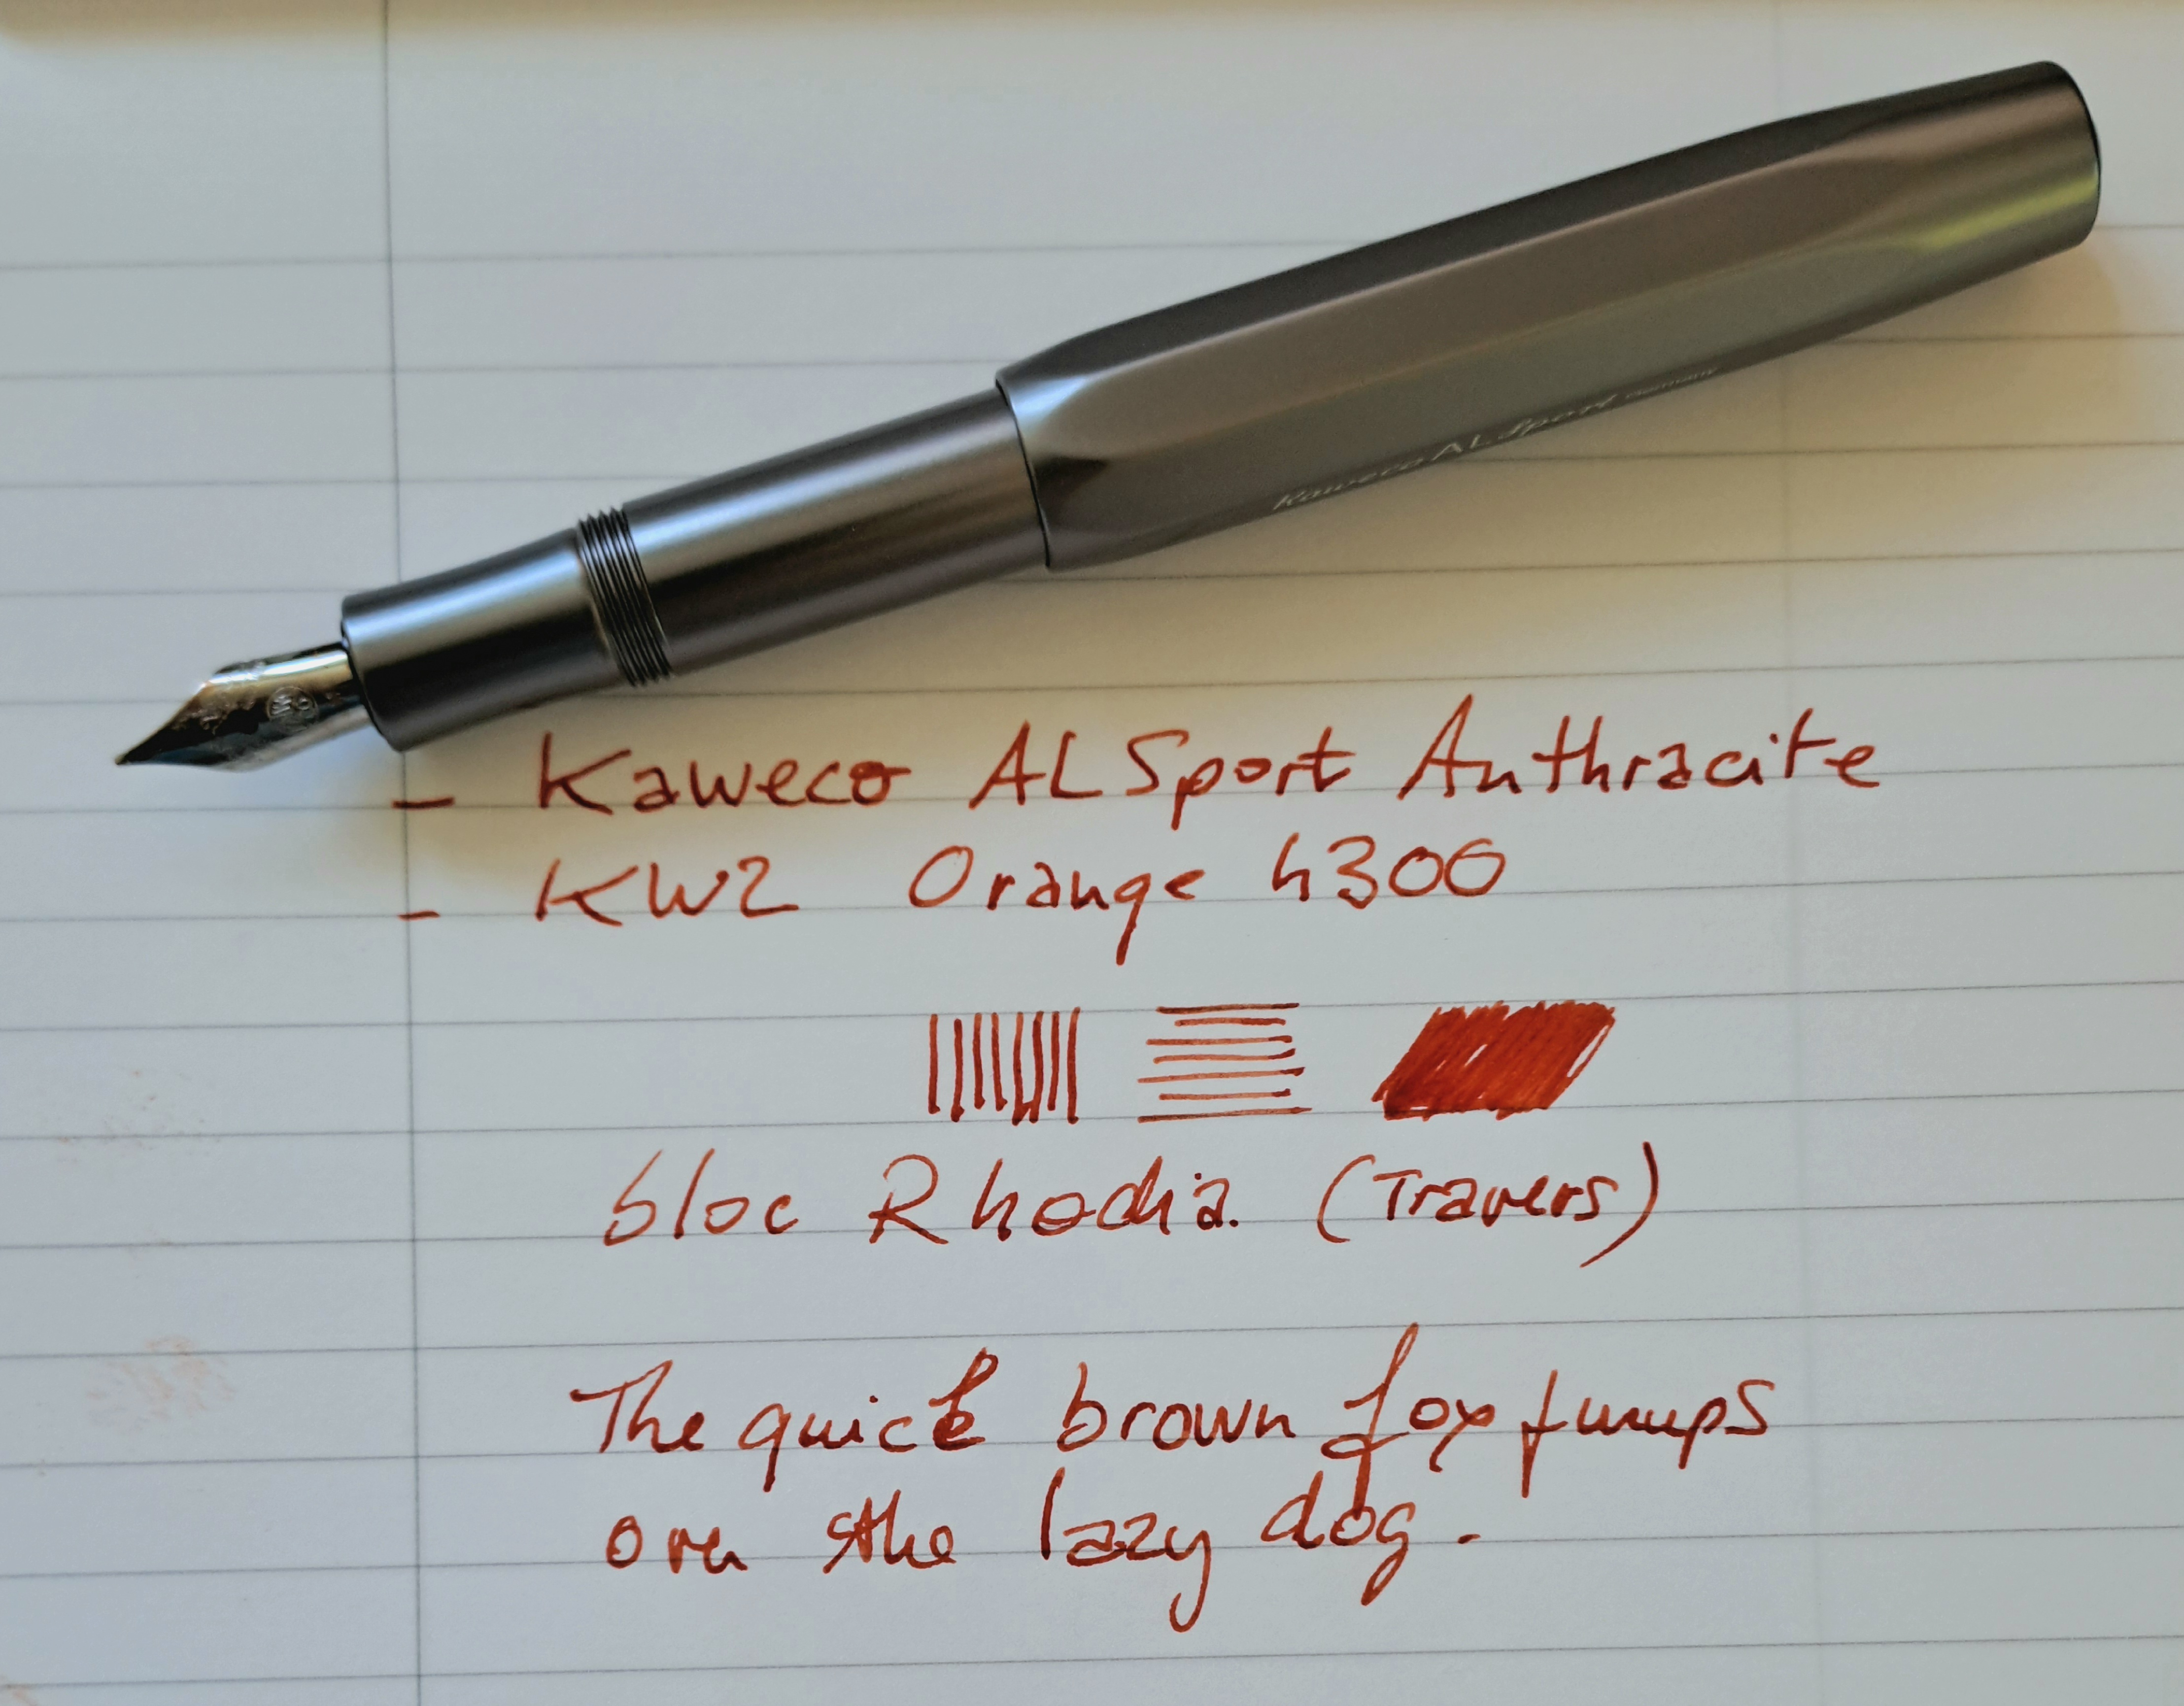 Kaweco AL Sport Germany
- Kaweco AL Sport Anthracite
- KWZ Orange 4300
bloc Rhodia (Travers)
The quick brown fox jumps
over sthe lazy dog.